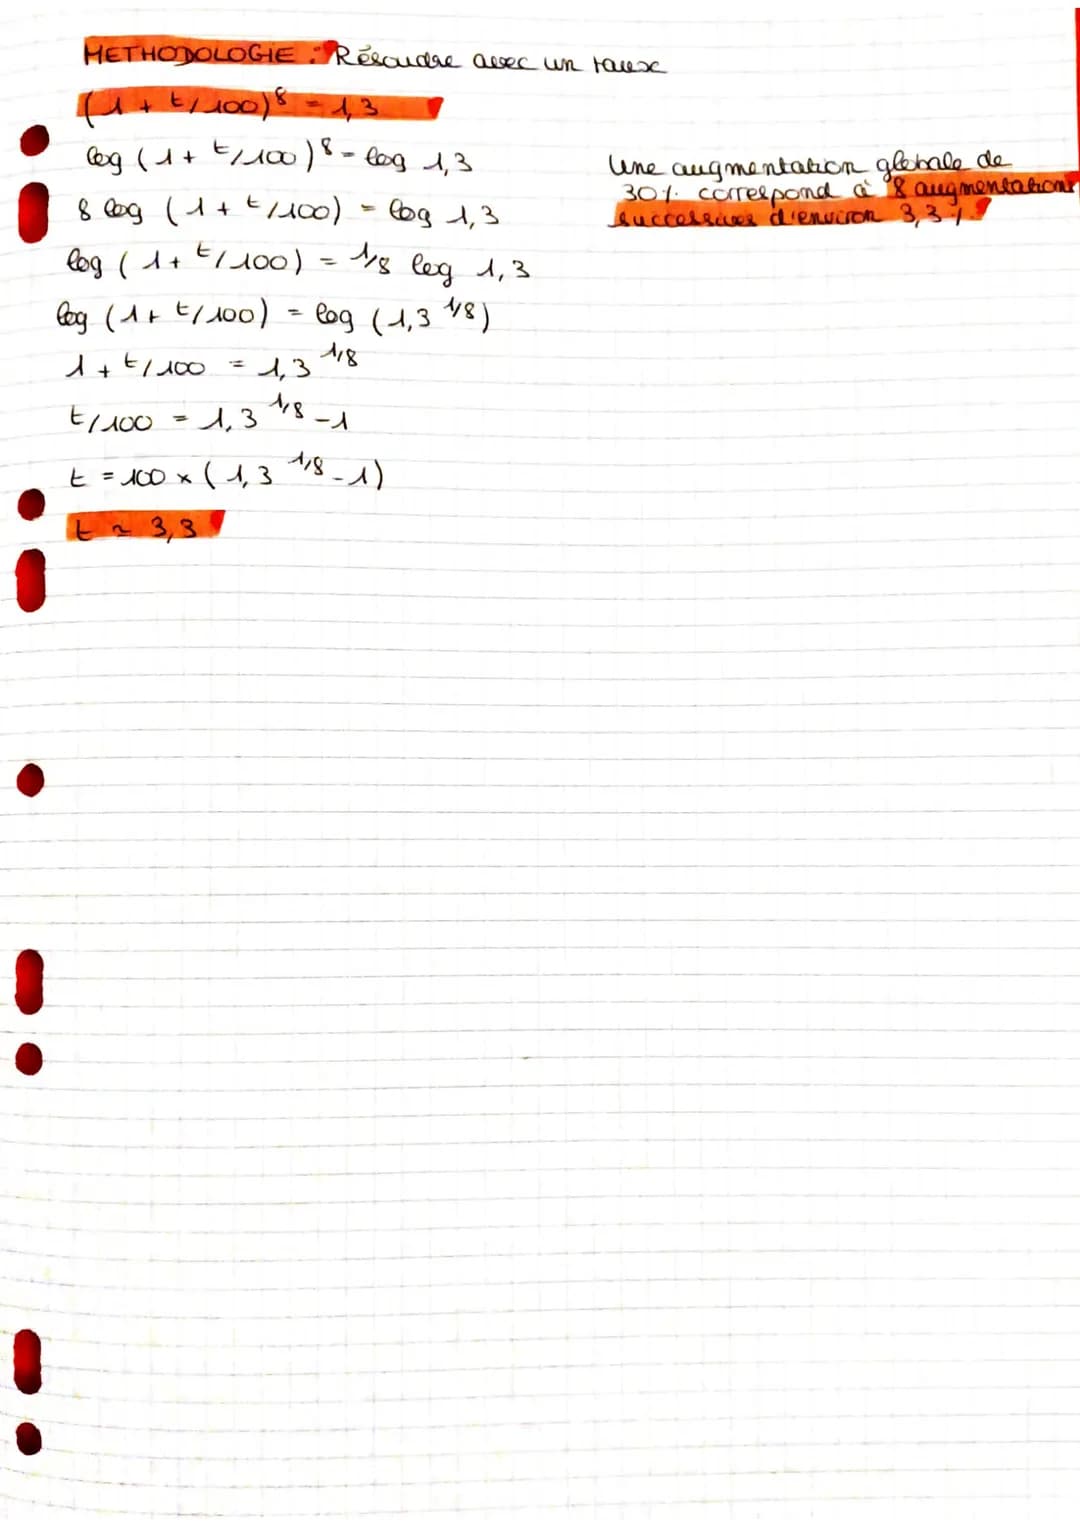 METHODOLOGIE : Résoudre avec un taux
(1 + t/100)⁸ = 1,3
log (1 + t/100)⁸ = log 1,3
8 log (1 + t/100) = log 1,3
log (1 + t/100) = 1/8 log 1,3
log (1 + t/100) = log (1,3 ^1/8)
1 + t/100 = 1,3 ^1/8
t/100 = 1,3 ^1/8 - 1
t = 100 × (1,3 ^1/8 - 1)
t ≃ 3,3
Une augmentation globale de
30% correspond à 8 augmentations
successives d'environ 3,3%